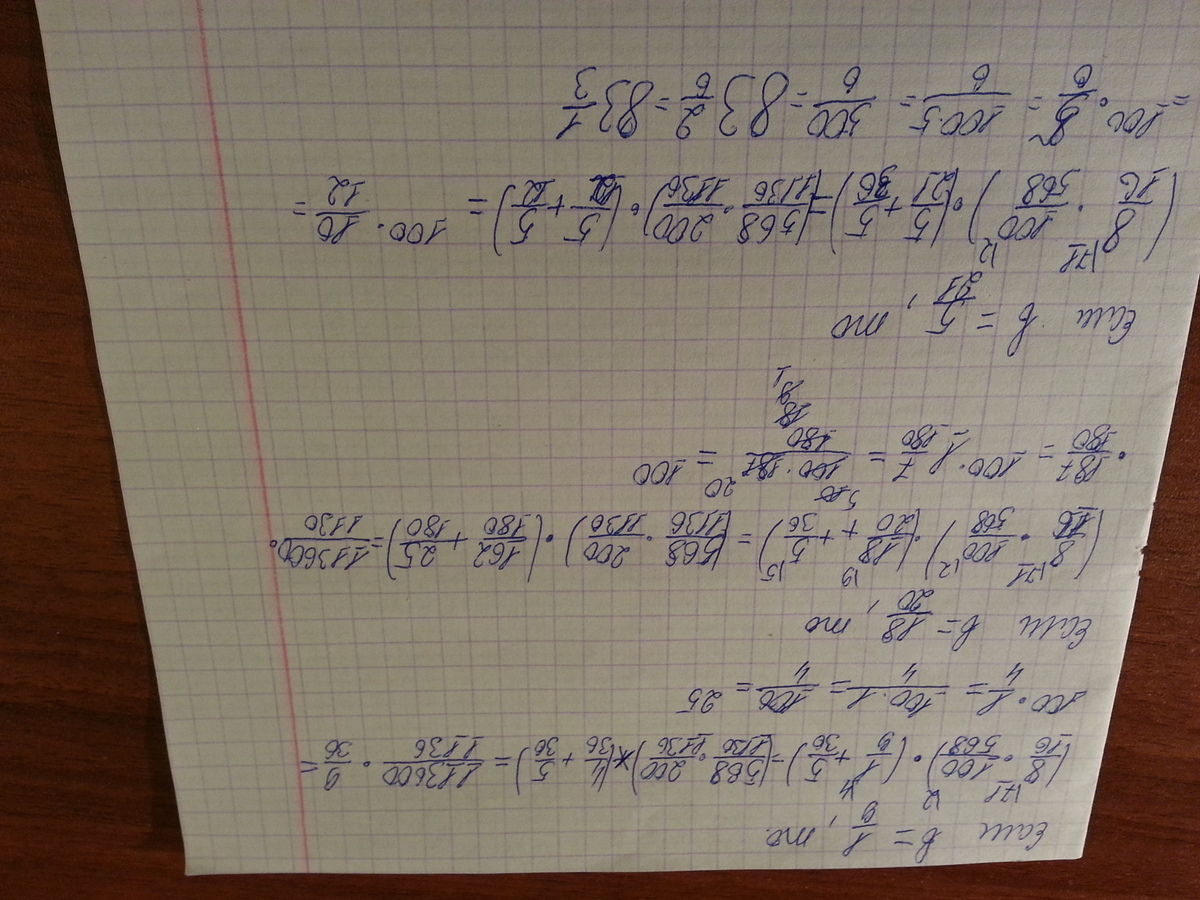 Если в = 1/9, то
(8/16 · 100/568) · (1/9 + 5/36) = (568/1136 · 200/1136) * (4/36 + 5/36) = 113600/1136 · 9/36 =
100 · 1/4 = 100·1/4 = 100/4 = 25
Если в = 18/20, то
(8/16 · 100/568) · (18/20 + 5/36) = (568/1136 · 200/1136) · (162/180 + 25/180) = 113600/1130 ·
· 187/180 = 100 · 1 7/180 = 100·187/180 = 100
Если в = 5/21, то
(8/16 · 100/568) · (5/21 + 5/36) = (568/1136 · 200/1136) · (5/12 + 5/12) = 100 · 10/12 =
= 100 · 5/6 = 100·5/6 = 500/6 = 83 2/6 = 83 1/3